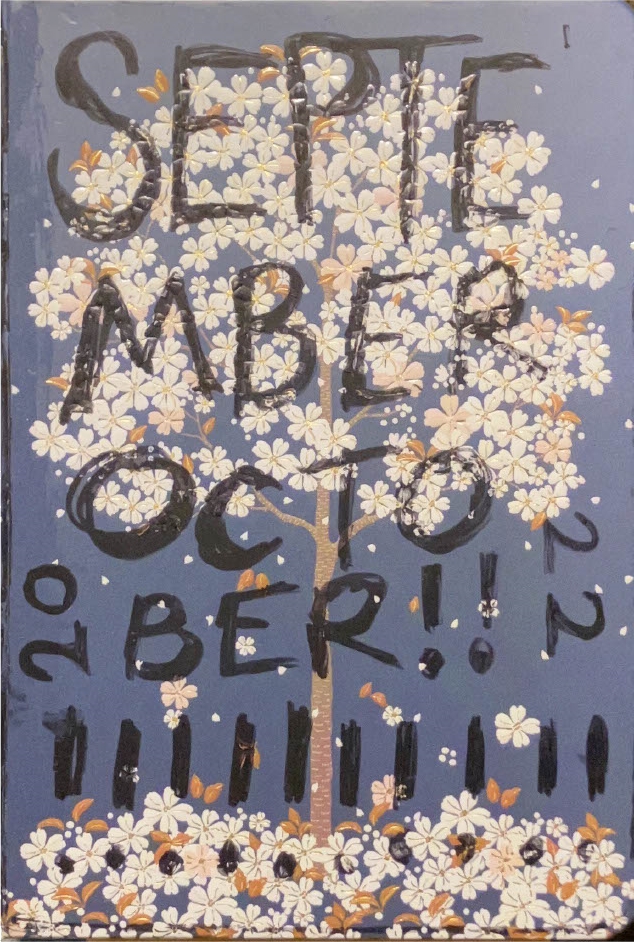 SEPTE
MBER
OCTO
BER!!
20
22
!!!!!!!!!!